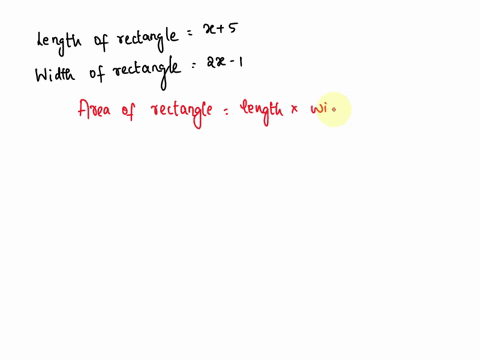 Length of rectangle = x+5
Width of rectangle = 2x-1
Area of rectangle = length × wi